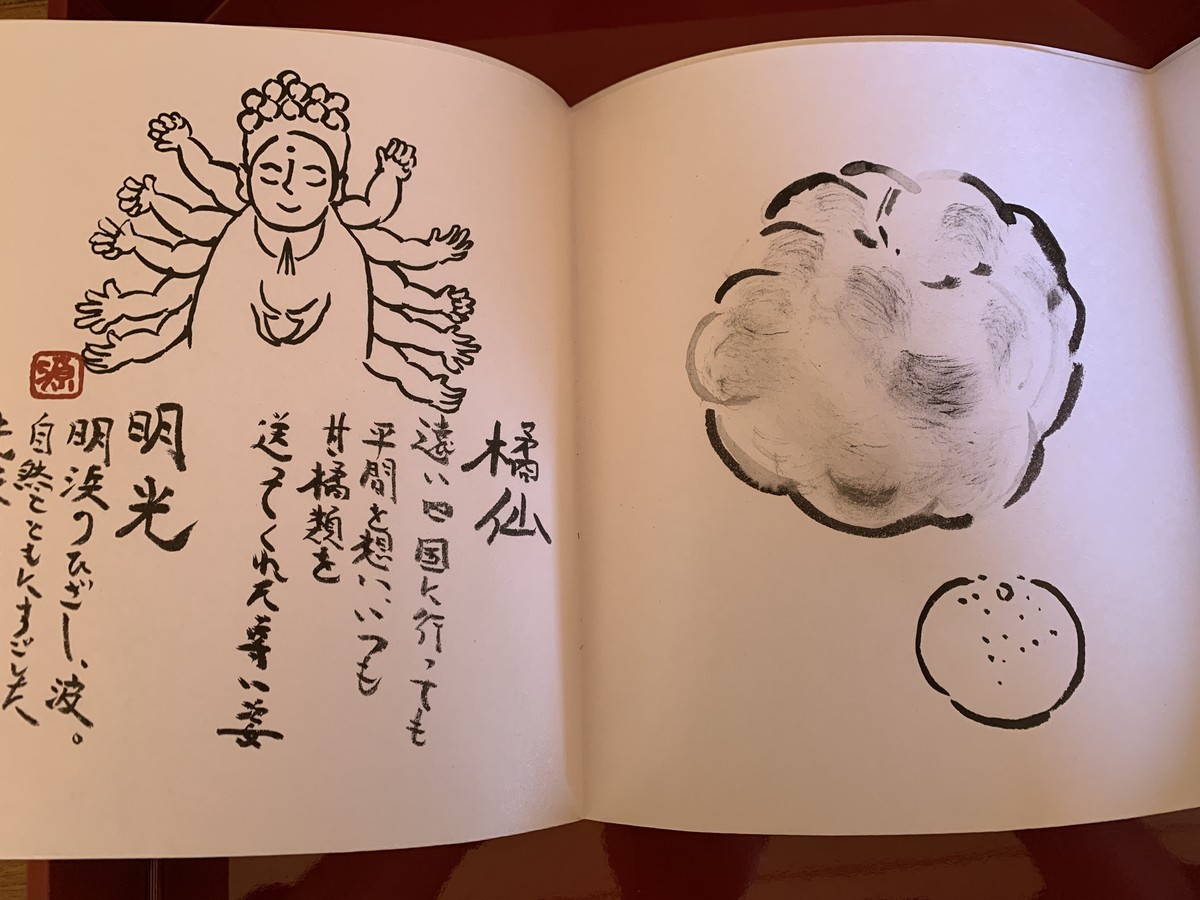 橘仙
遠い四国に行っても
平間を想い、いつも
甘橘類を
送ってくれた尊い姿
明光
明浜のひざし、波。
自然とともにすごした
源